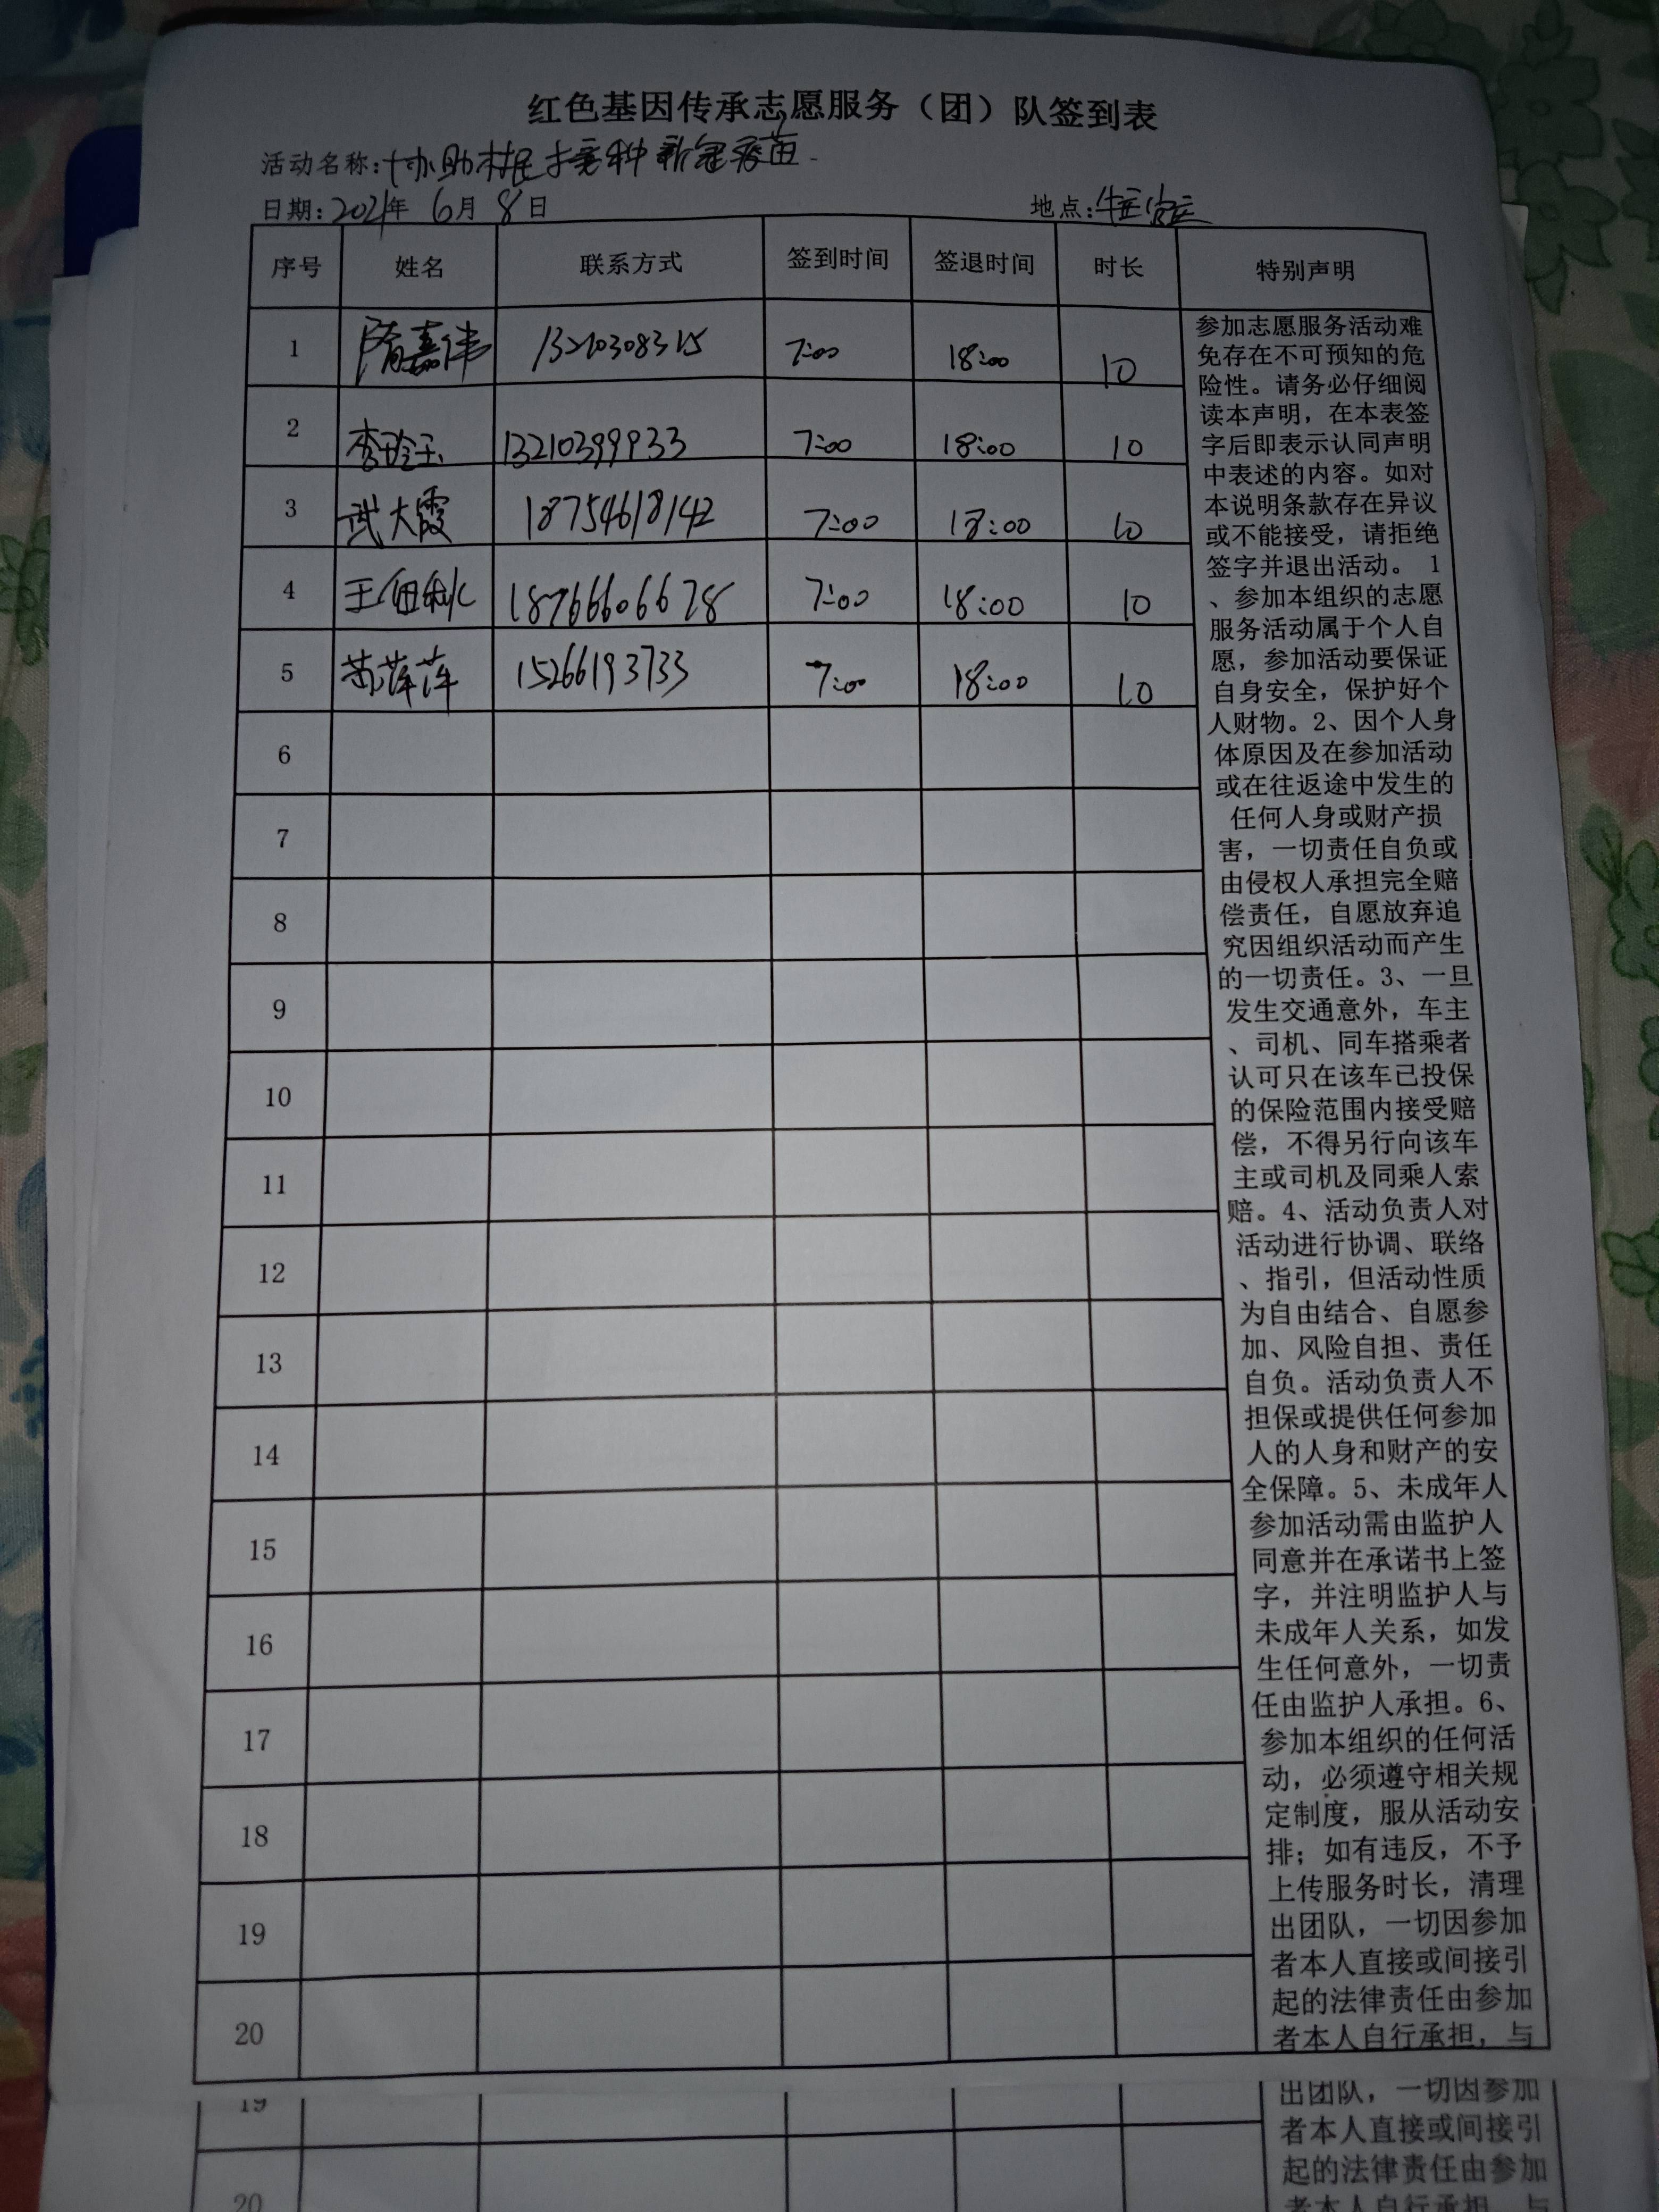 红色基因传承志愿服务（团）队签到表
活动名称:协助村民接种新冠疫苗
日期:2021年 6月 8日 地点:
序号 姓名 联系方式 签到时间 签退时间 时长 特别声明
1 隋嘉伟 13210308315 7:00 18:00 10
2 李玲玉 13210399933 7:00 18:00 10
3 武大霞 18754618142 7:00 18:00 10
4 18766606678 7:00 18:00 10
5 萍萍 15266193733 7:00 18:00 10
6
7
8
9
10
11
12
13
14
15
16
17
18
19
20
参加志愿服务活动难
免存在不可预知的危
险性。请务必仔细阅
读本声明，在本表签
字后即表示认同声明
中表述的内容。如对
本说明条款存在异议
或不能接受，请拒绝
签字并退出活动。 1
、参加本组织的志愿
服务活动属于个人自
愿，参加活动要保证
自身安全，保护好个
人财物。2、因个人身
体原因及在参加活动
或在往返途中发生的
任何人身或财产损
害，一切责任自负或
由侵权人承担完全赔
偿责任，自愿放弃追
究因组织活动而产生
的一切责任。3、一旦
发生交通意外，车主
、司机、同车搭乘者
认可只在该车已投保
的保险范围内接受赔
偿，不得另行向该车
主或司机及同乘人索
赔。4、活动负责人对
活动进行协调、联络
、指引，但活动性质
为自由结合、自愿参
加、风险自担、责任
自负。活动负责人不
担保或提供任何参加
人的人身和财产的安
全保障。5、未成年人
参加活动需由监护人
同意并在承诺书上签
字，并注明监护人与
未成年人关系，如发
生任何意外，一切责
任由监护人承担。6、
参加本组织的任何活
动，必须遵守相关规
定制度，服从活动安
排；如有违反，不予
上传服务时长，清理
出团队，一切因参加
者本人直接或间接引
起的法律责任由参加
者本人自行承担，与
19
20
出团队，一切因参加
者本人直接或间接引
起的法律责任由参加
者本人自行承担，与